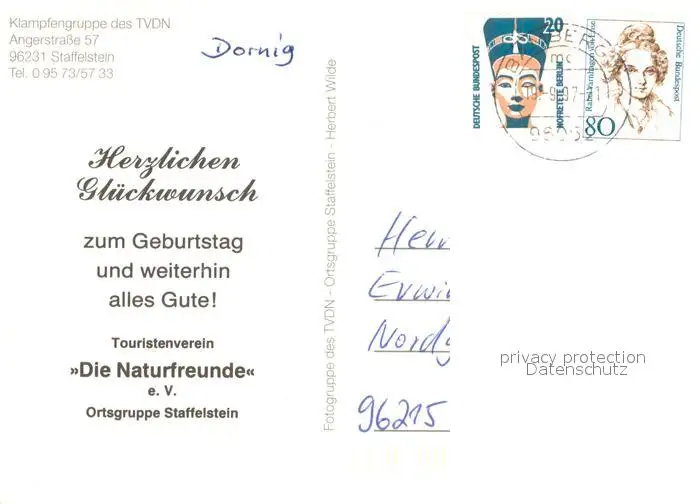 Klampfengruppe des TVDN
Angerstraße 57
96231 Staffelstein
Tel. 0 95 73/57 33
Dornig
Herzlichen
Glückwunsch
zum Geburtstag
und weiterhin
alles Gute!
Touristenverein
»Die Naturfreunde«
e. V.
Ortsgruppe Staffelstein
Fotogruppe des TVDN - Ortsgruppe Staffelstein - Herbert Wilde
20
DEUTSCHE BUNDESPOST
NOFRETETE BERLIN
Rahel Varnhagen von Ense
80
Deutsche Bundespost
Herr
Erwin
96215
privacy protection
Datenschutz